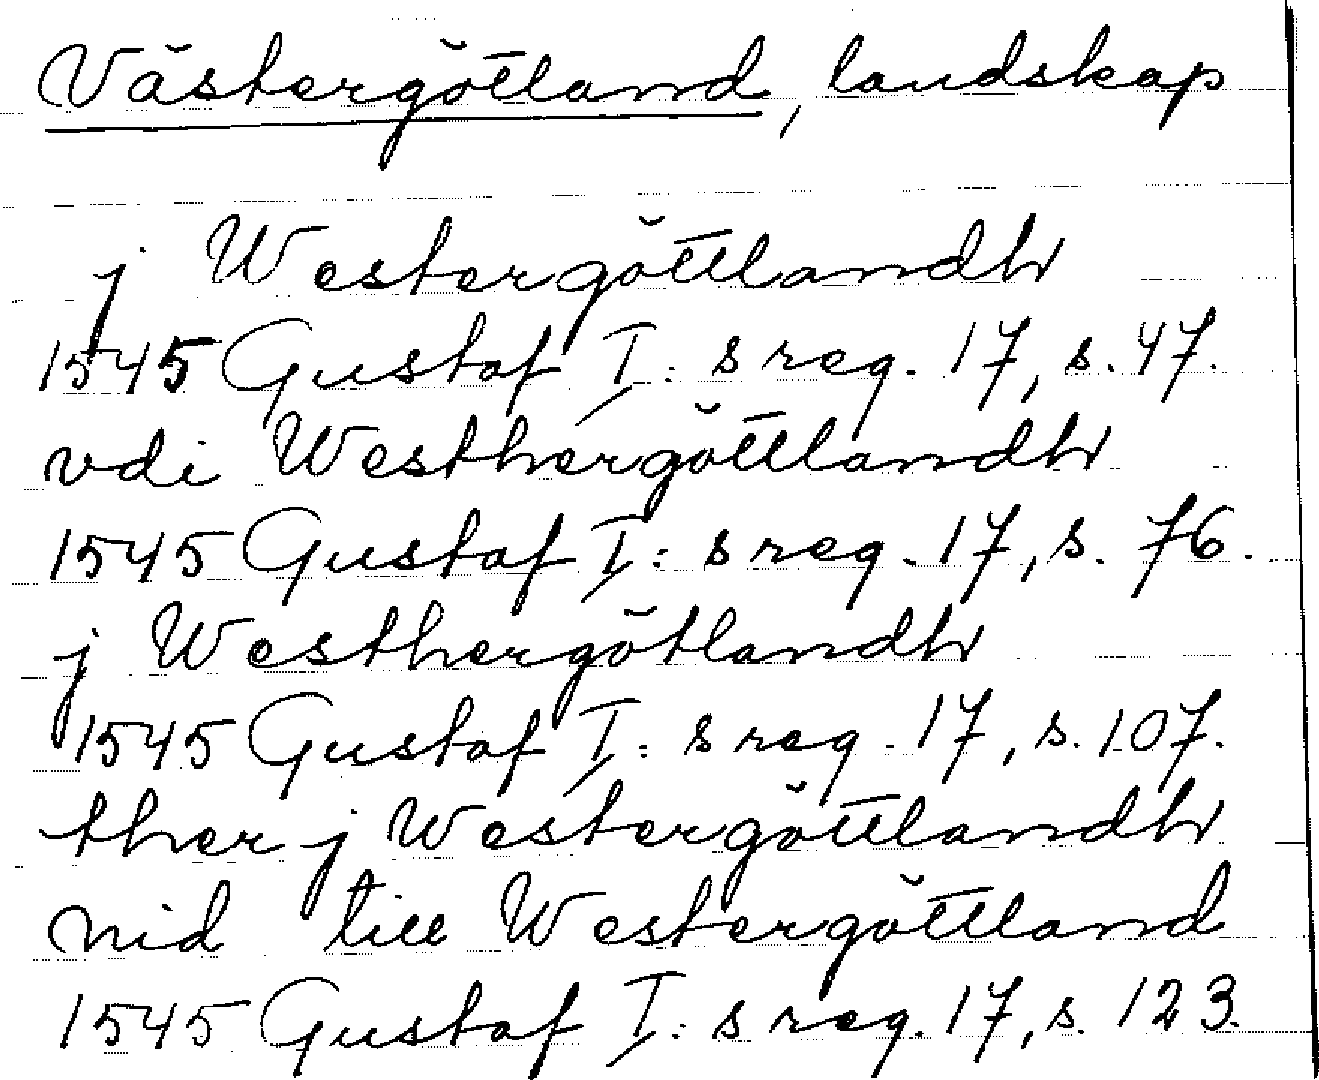 Västergötland, landskap
j Westergöttlandh
1545 Gustaf I:s reg. 17, s. 47.
vdi Westhergöttlandh
1545 Gustaf I:s reg. 17, s. 76.
j Westhergötlandh
1545 Gustaf I:s reg. 17, s. 107.
ther j Westergöttlandh
nid till Westergöttland
1545 Gustaf I:s reg. 17, s. 123.